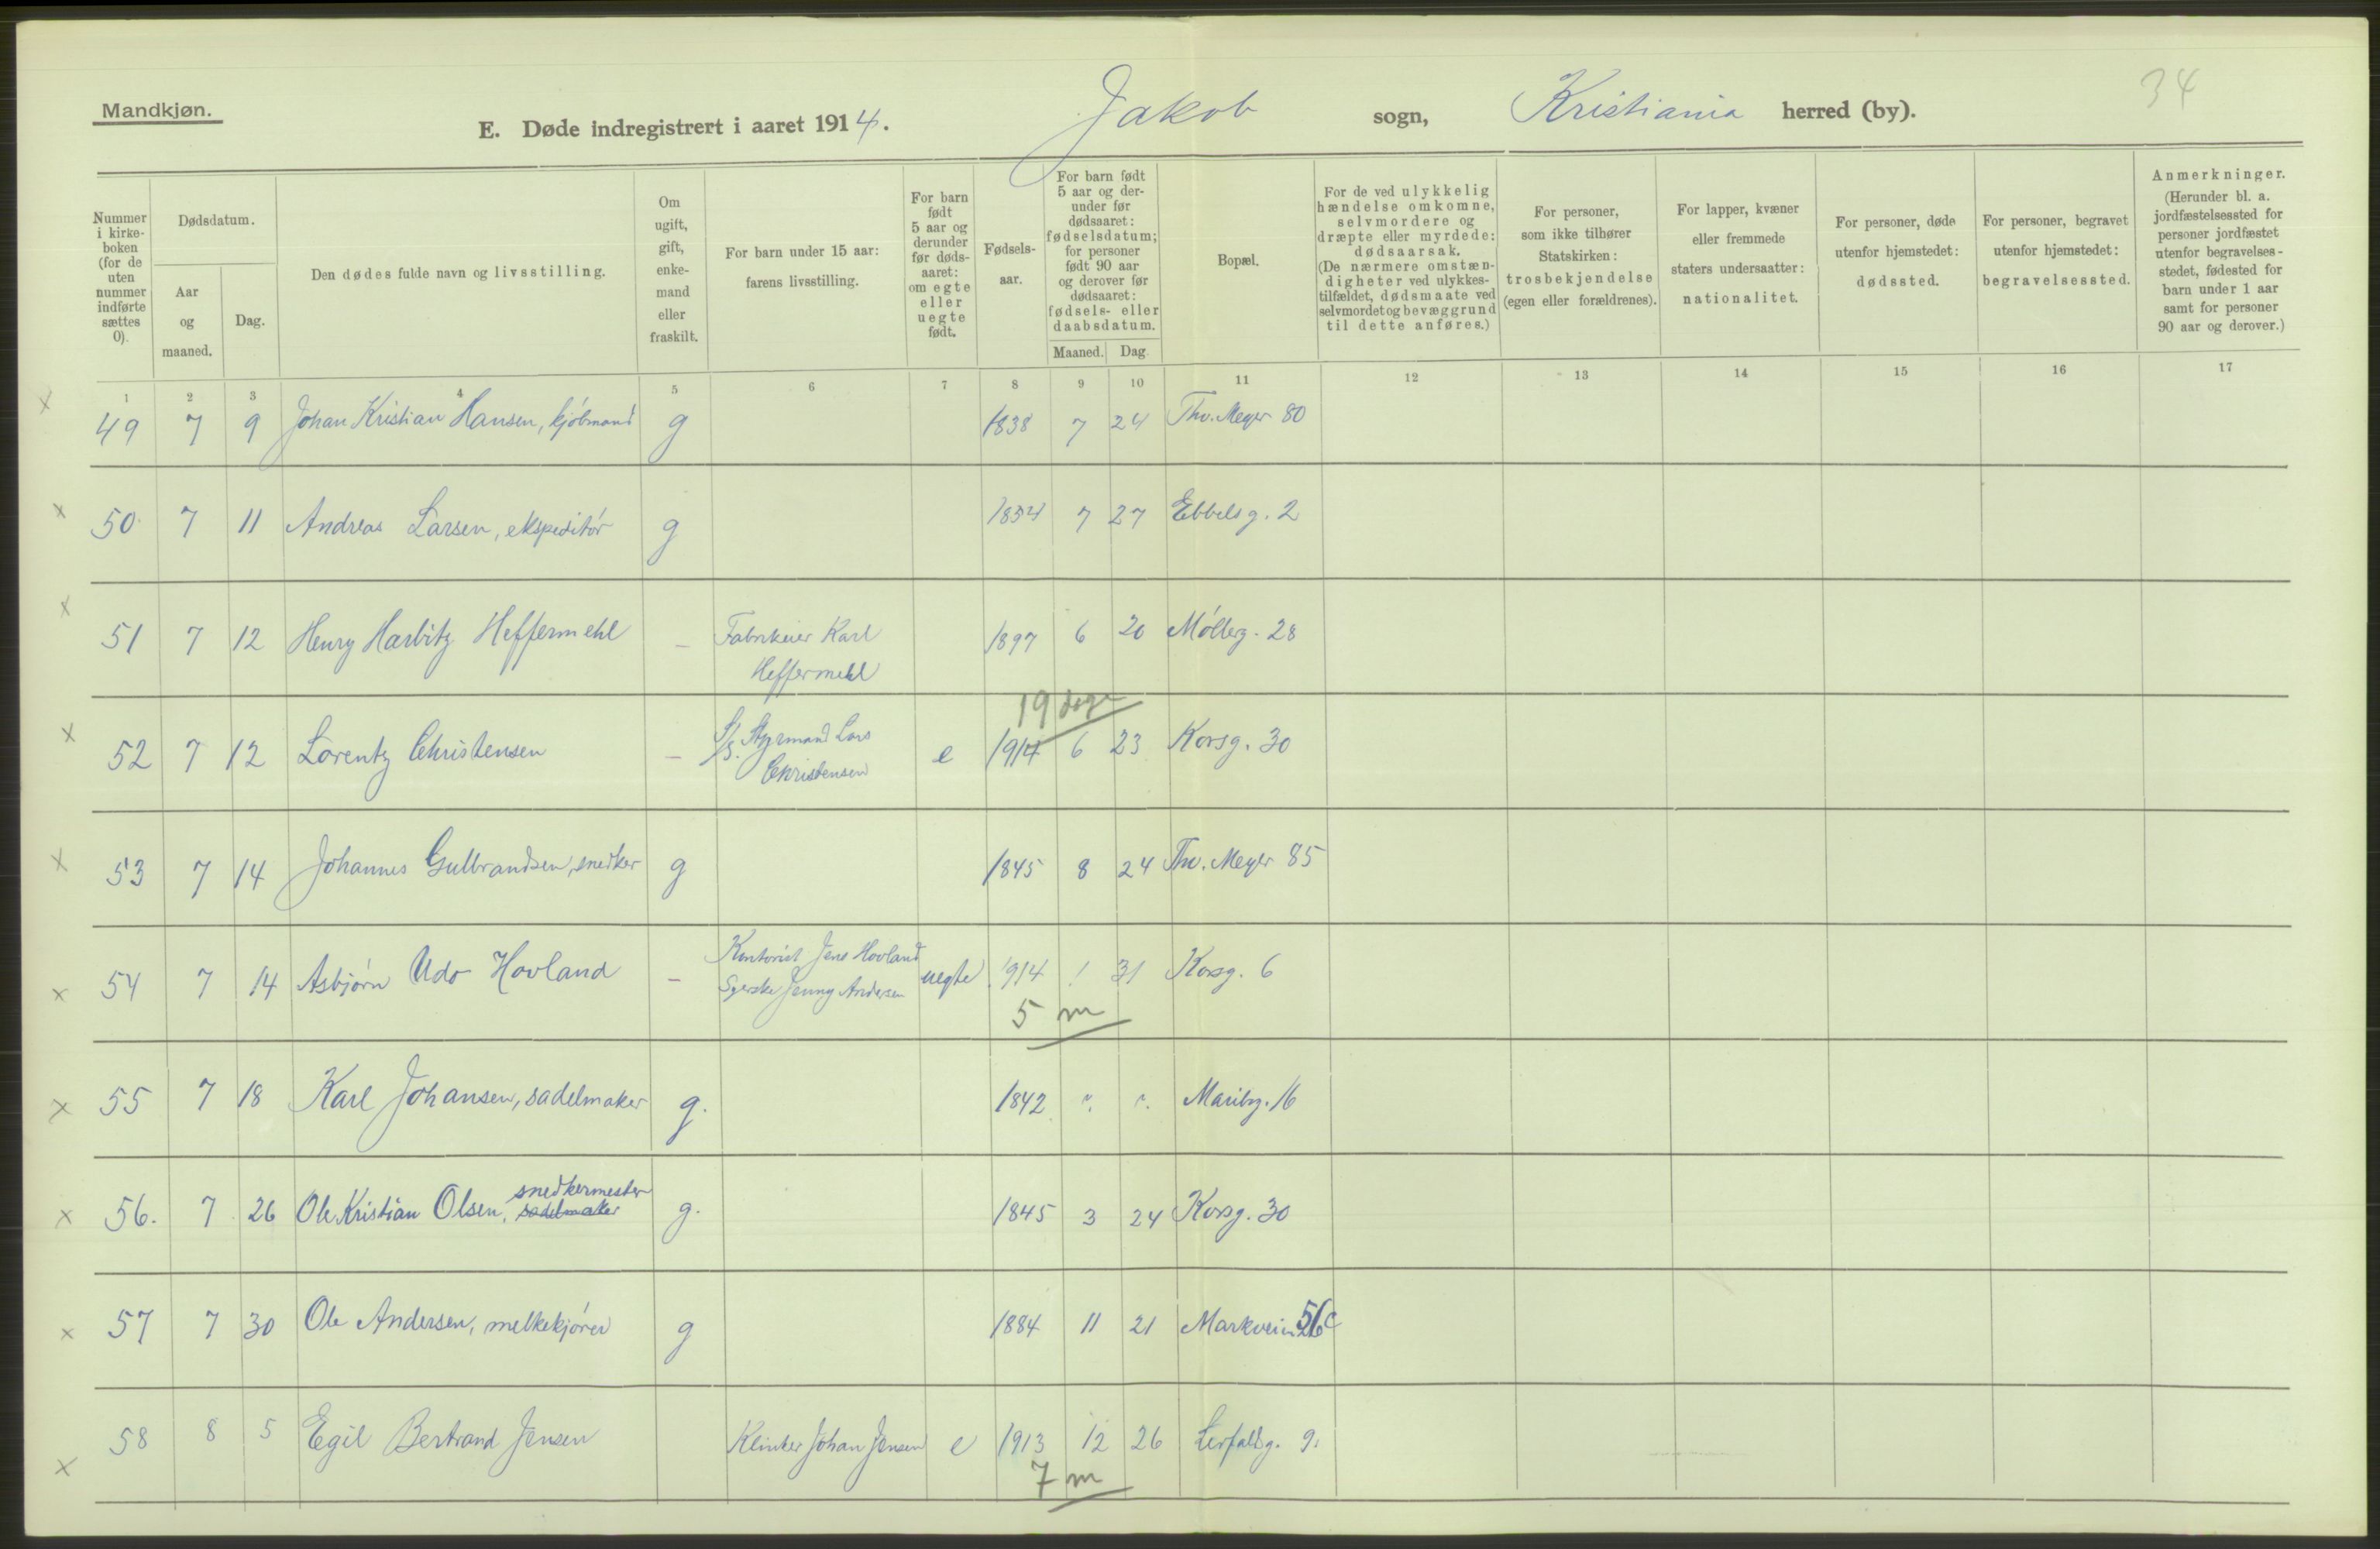 34
Mandkjøn.
E. Døde indregistrert i aaret 1914. Jakob sogn, Kristiania herred (by).
Nummer i kirke-boken (for de uten nummer indførte sættes 0).
Dødsdatum.
Aar og maaned.
Dag.
Den dødes fulde navn og livsstilling.
Om ugift, gift, enke-mand eller fraskilt.
For barn under 15 aar: farens livsstilling.
For barn født 5 aar og derunder før døds-aaret: om egte eller uegte født.
Fødsels-aar.
For barn født 5 aar og der-under før dødsaaret: fødselsdatum; for personer født 90 aar og derover før dødsaaret: fødsels- eller daabsdatum.
Maaned. Dag.
Bopæl.
For de ved ulykkelig hændelse omkomne, selvmordere og dræpte eller myrdede: dødsaarsak. (De nærmere omstæn-digheter ved ulykkes-tilfældet, dødsmaate ved selvmordet og bevæggrund til dette anføres.)
For personer, som ikke tilhører Statskirken: trosbekjendelse (egen eller forældrenes).
For lapper, kvæner eller fremmede staters undersaatter: nationalitet.
For personer, døde utenfor hjemstedet: dødssted.
For personer, begravet utenfor hjemstedet: begravelsessted.
Anmerkninger. (Herunder bl. a. jordfæstelsessted for personer jordfæstet utenfor begravelses-stedet, fødested for barn under 1 aar samt for personer 90 aar og derover.)
1 2 3 4 5 6 7 8 9 10 11 12 13 14 15 16 17
x 49 7 9 Johan Kristian Hansen, kjøbmand g 1838 7 24 Thv. Meyer 80
x 50 7 11 Andreas Larsen, ekspeditør g 1834 7 27 Ebbelsg. 2
x 51 7 12 Henry Harbitz Heffermehl – Fabrikeier Karl Heffermehl 1897 6 20 Møllerg. 28
19 dage
x 52 7 12 Lorentz Christensen – S/S. Styrmand Lars Christensen e 1914 6 23 Korsg. 30
x 53 7 14 Johannes Gulbrandsen, snedker g 1845 8 24 Thv. Meyer 85
x 54 7 14 Asbjørn Udo Hovland – Kontorist Jens Hovland Syerske Jenny Andersen uegte 1914 1 31 Korsg. 6
5 m
x 55 7 18 Karl Johansen, sadelmaker g. 1842 ". ". Maribg. 16
x 56. 7 26 Ole Kristian Olsen, sadelmaker snedkermester g. 1845 3 24 Korsg. 30
x 57 7 30 Ole Andersen, melkekjører g 1884 11 21 Markvein 56c
x 58 8 5 Egil Bertrand Jensen Klinker Johan Jensen e 1913 12 26 Lerfaldsg. 9.
7 m